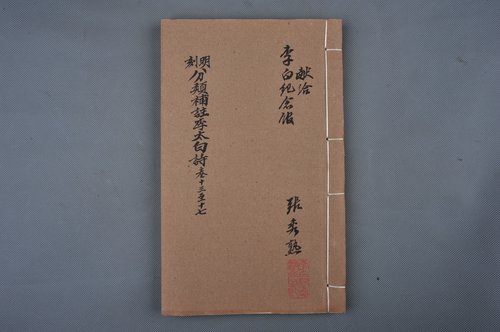 献给
李白纪念馆
张秀熟
明刻
分類補註李太白詩 卷十三至十七